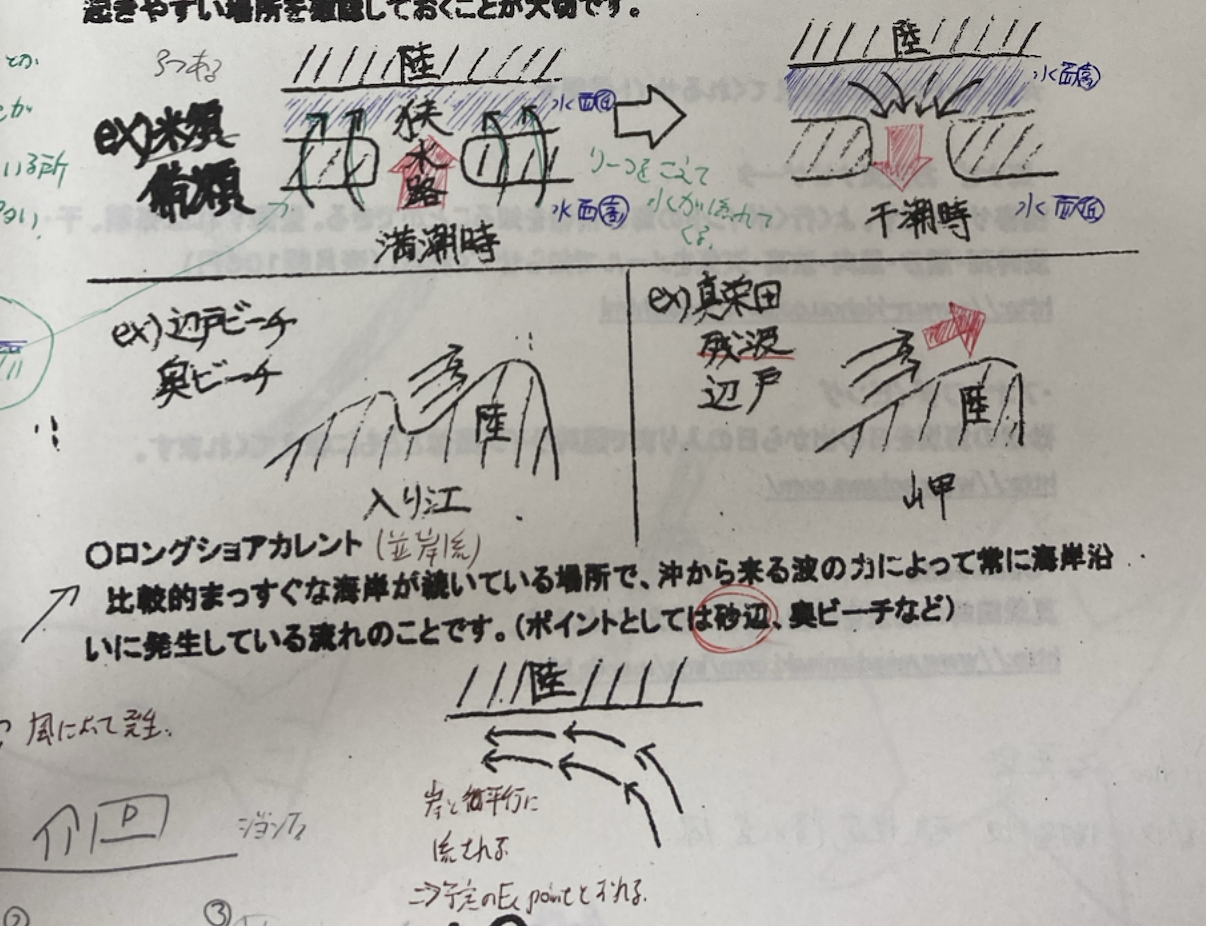 起きやすい場所を確認しておくことが大切です。
陸
水面低
狭水路
水面高
満潮時
ex)米須
備瀬
リーフをこえて
水が流れて
くる。
陸
水面高
水面低
干潮時
ex)辺戸ビーチ
奥ビーチ
陸
入り江
ex)真栄田
残波
辺戸
陸
岬
〇ロングショアカレント(並岸流)
比較的まっすぐな海岸が続いている場所で、沖から来る波の力によって常に海岸沿
いに発生している流れのことです。(ポイントとしては砂辺、奥ビーチなど)
陸
風によって発生.
岸と平行に
流される
⇒予定のEx pointとずれる.
P
②
③